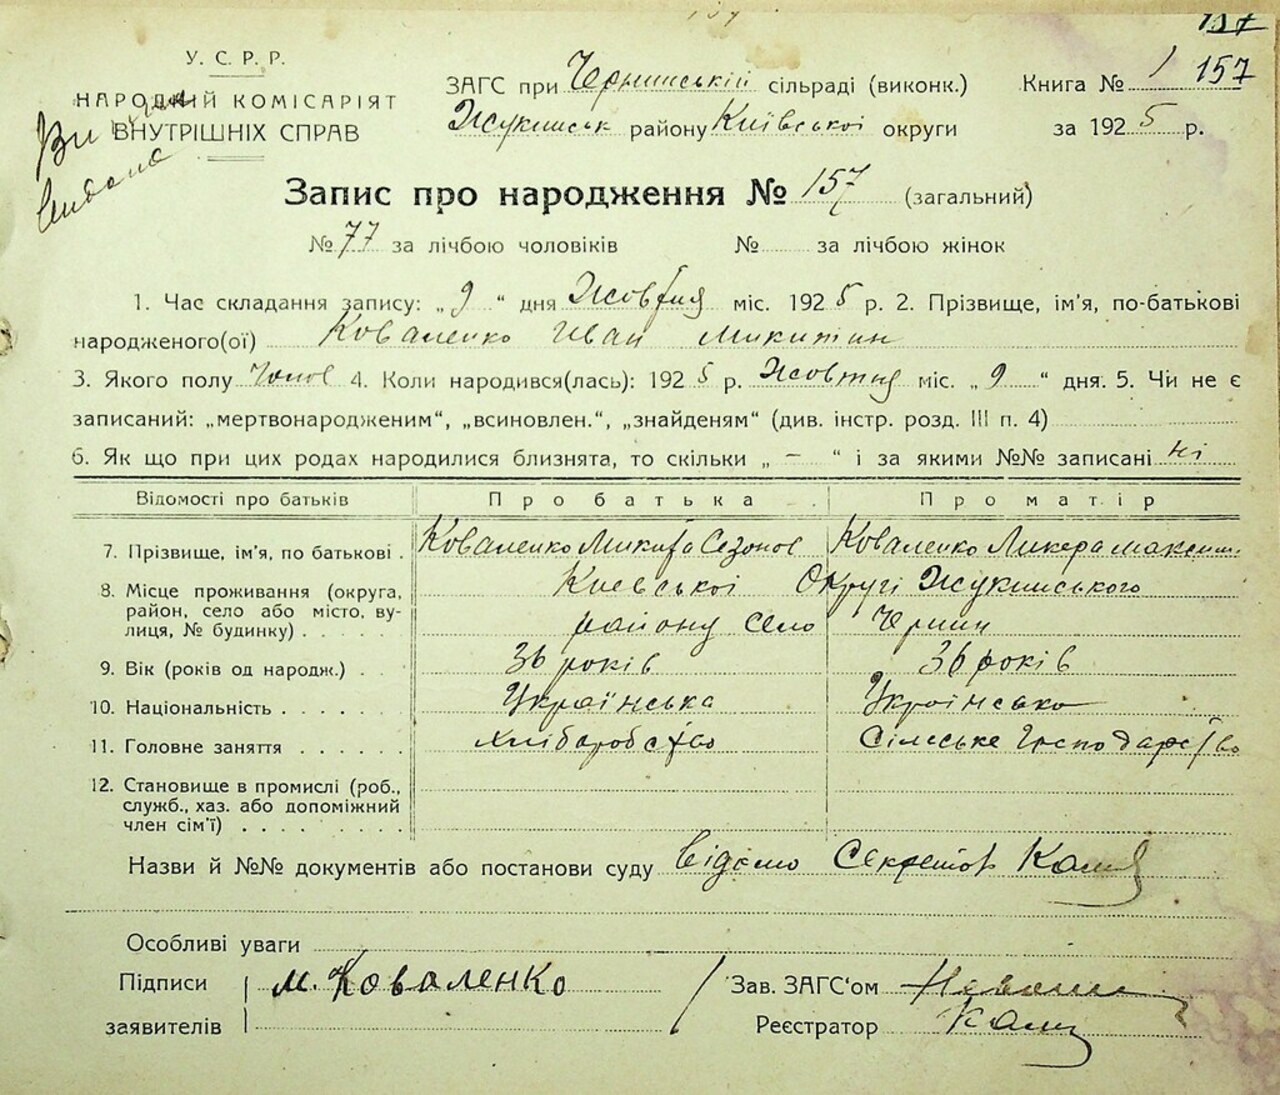 157
У. С. Р. Р.
НАРОДНІЙ КОМІСАРІЯТ
ВНУТРІШНІХ СПРАВ
ЗАГС при Чернинській сільраді (виконк.)
Жукинськ району Київської округи
Книга № 1 157
за 1925 р.
Запис про народження № 157 (загальний)
№ 77 за лічбою чоловіків № за лічбою жінок
1. Час складання запису: „9“ дня Жовтня міс. 1925 р. 2. Прізвище, ім'я, по-батькові
народженого(ої) Коваленко Иван Микитин
3. Якого полу Чолов 4. Коли народився(лась): 1925 р. Жовтня міс. „9“ дня. 5. Чи не є
записаний: „мертвонародженим“, „всиновлен.“, „знайденям“ (див. інстр. розд. III п. 4)
6. Як що при цих родах народилися близнята, то скільки „ – “ і за якими №№ записані ні
Відомості про батьків Про батька Про матір
7. Прізвище, ім'я, по батькові . Коваленко Микита Сезонов Коваленко Ликера Максим.
8. Місце проживання (округа, Киевської Округі Жукинського
район, село або місто, ву-
лиця, № будинку) . . . . . району село Чернин
9. Вік (років од народж.) . . 36 років 36 років
10. Національність . . . . . . Українська Українсько
11. Головне заняття . . . . . . хліборобство Сілеське Господарство
12. Становище в промислі (роб.,
служб., хаз. або допоміжний
член сім'ї) . . . . . . . .
Назви й №№ документів або постанови суду відомо Секретар
Особливі уваги
Підписи М. Коваленко Зав. ЗАГС'ом
заявителів Реєстратор